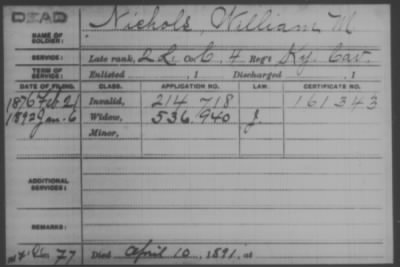 DEAD
Nichols, William M
NAME OF SOLDIER:
SERVICE: Late rank, 2 L. Co. C, 4 Reg't Ky. Cav.
TERM OF SERVICE: Enlisted , 1 Discharged , 1
DATE OF FILING. CLASS. APPLICATION NO. LAW. CERTIFICATE NO.
1876 Feb 21 Invalid, 214 718 161343
1892 Jan. 6 Widow, 536,940
Minor,
ADDITIONAL SERVICES:
REMARKS:
77 Died April 10, 1891, at